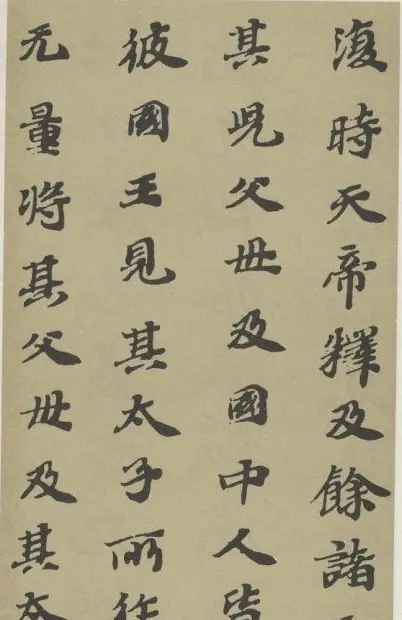 復時天帝釋及餘諸
其兒父母及國中人皆
彼國王見其太子所作
无量将其父母及其太